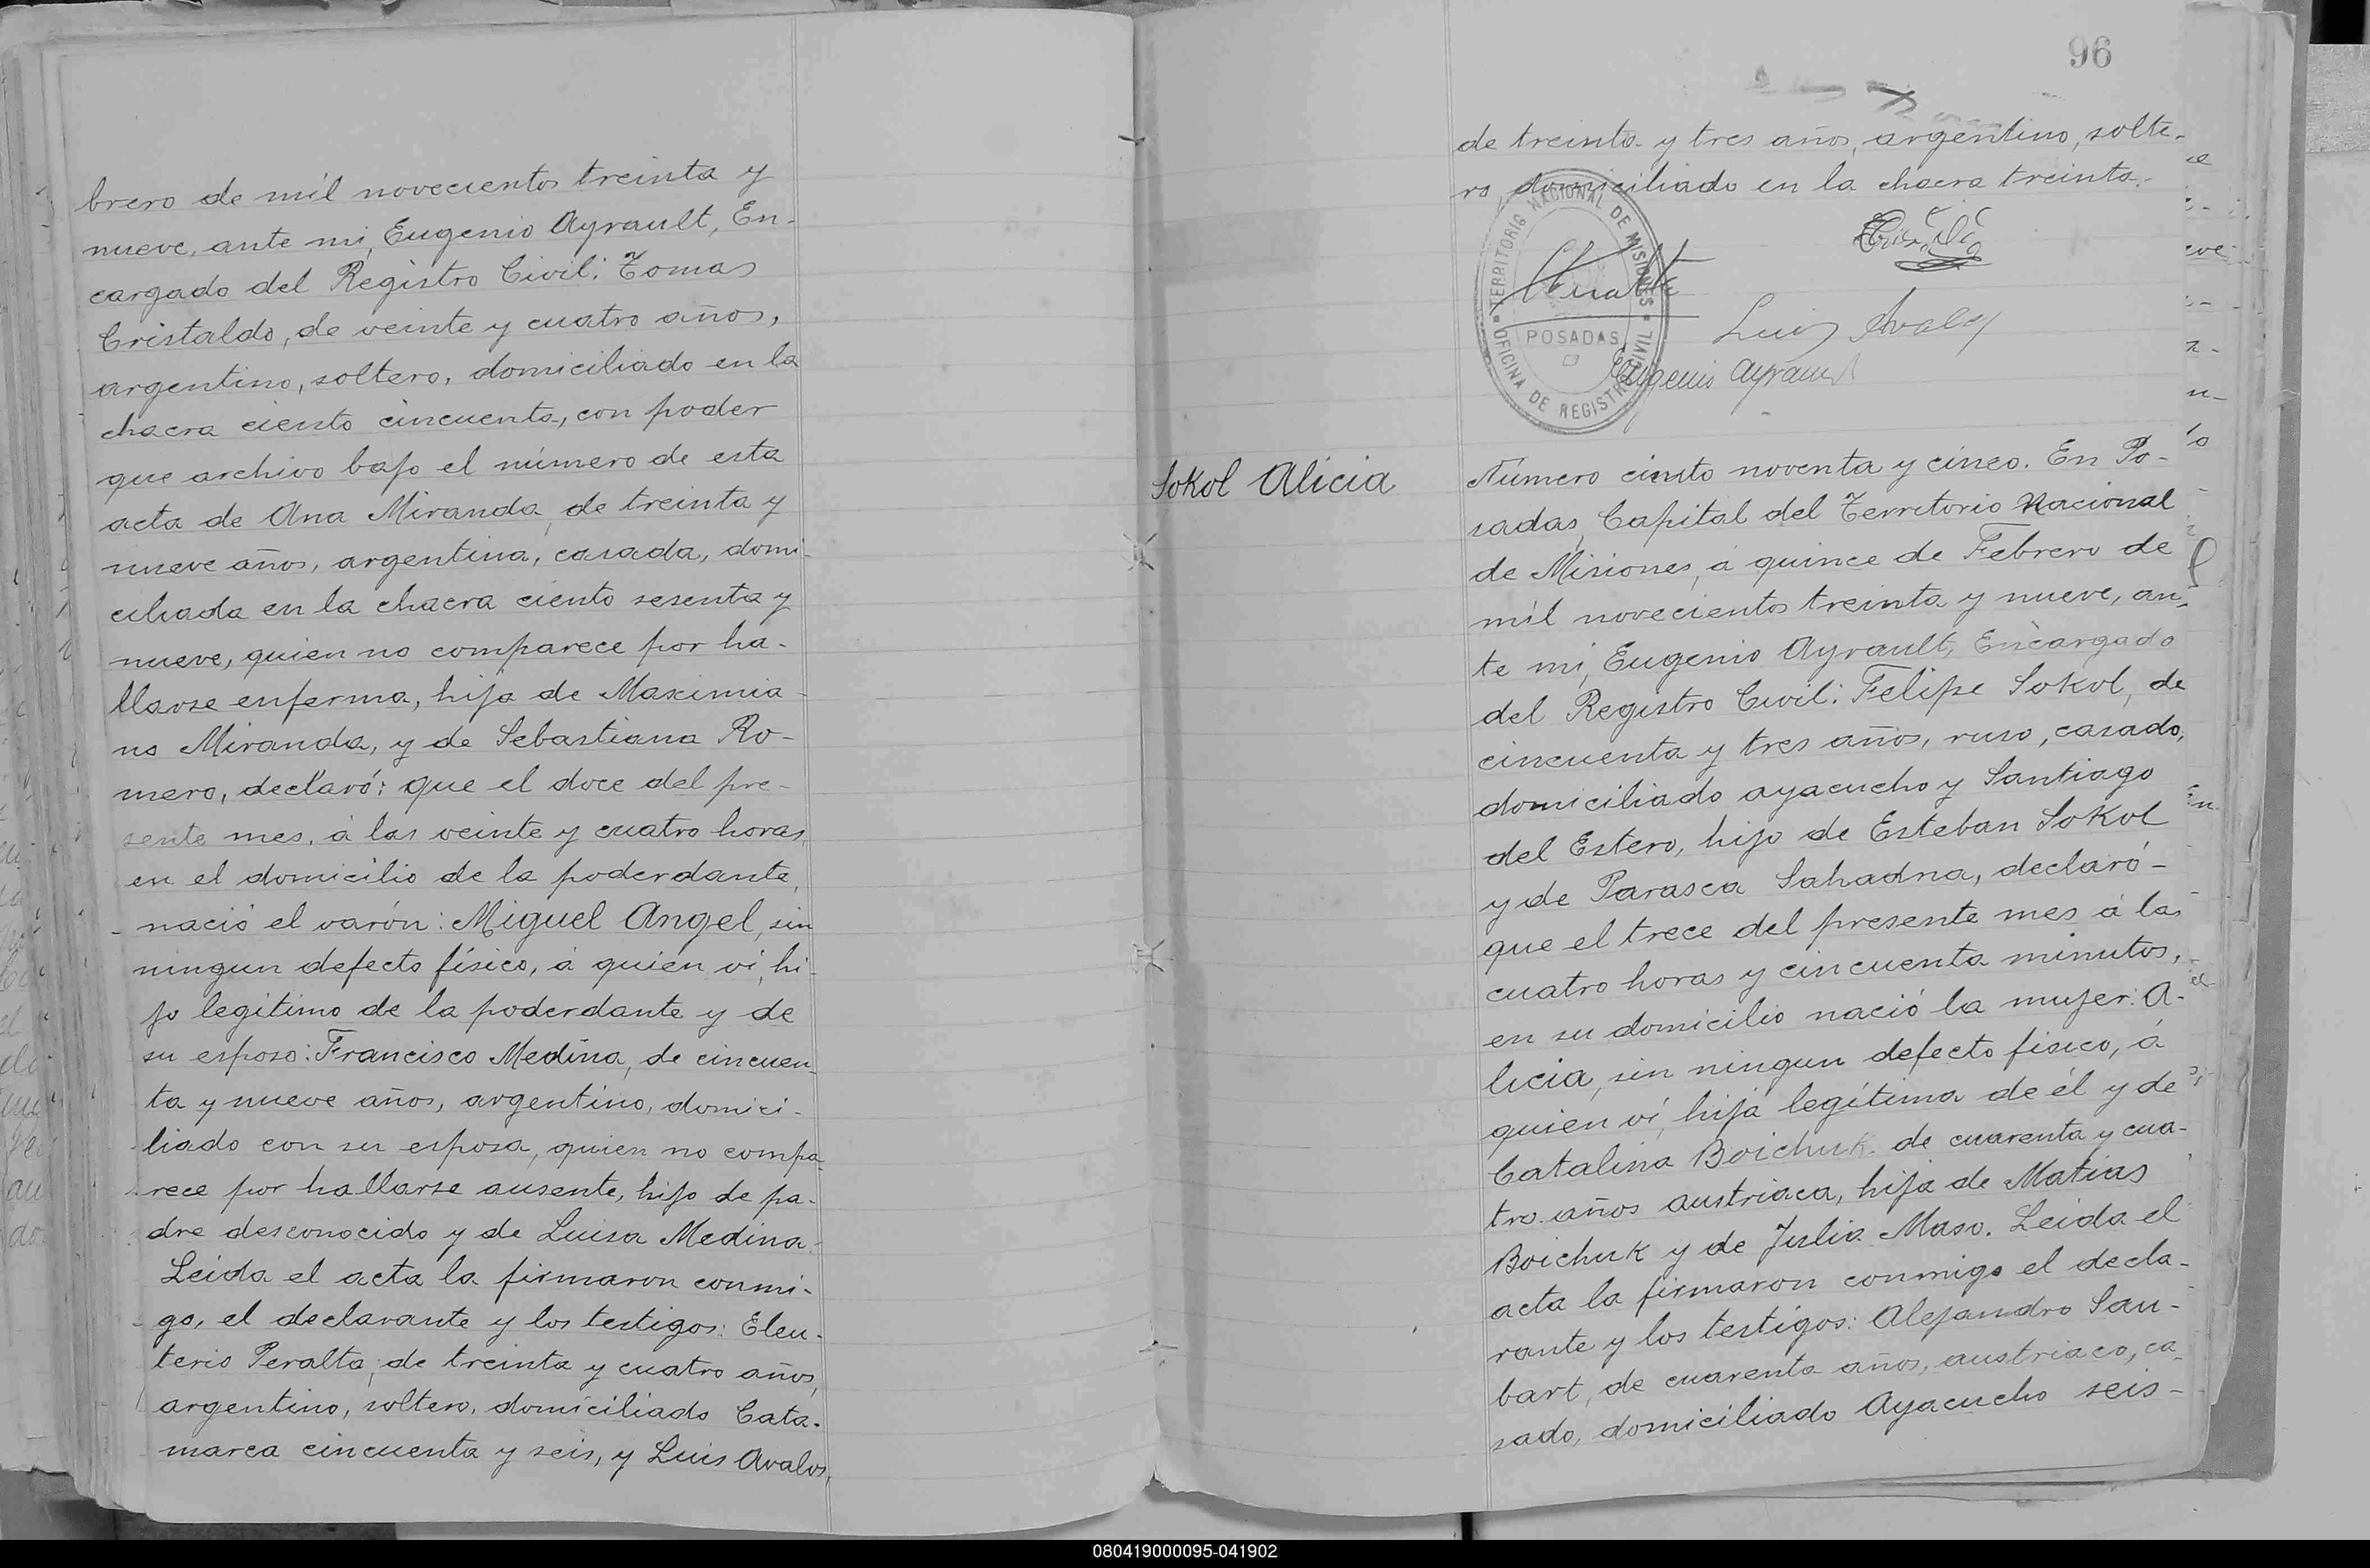 brero de mil novecientos treinta y
nueve, ante mi, Eugenio Ayrault, En-
cargado del Registro Civil: Tomas
Cristaldo, de veinte y cuatro años,
argentino, soltero, domiciliado en la
chacra ciento cincuenta, con poder
que archivo bajo el número de esta
acta de Ana Miranda, de treinta y
nueve años, argentina, casada, domi-
ciliada en la chacra ciento sesenta y
nueve, quien no comparece por ha-
llarse enferma, hija de Maximia-
no Miranda, y de Sebastiana Ro-
mero, declaró: que el doce del pre-
sente mes, á las veinte y cuatro horas,
en el domicilio de la poderdante,
nació el varón: Miguel Angel, sin
ningun defecto físico, á quien vi, hi-
jo legítimo de la poderdante y de
su esposo: Francisco Medina, de cincuen-
ta y nueve años, argentino, domici-
liado con su esposa, quien no compa-
rece por hallarse ausente, hijo de pa-
dre desconocido y de Luisa Medina.
Leida el acta la firmaron conmi-
go, el declarante y los testigos: Eleu-
terio Peralta, de treinta y cuatro años,
argentino, soltero, domiciliado Cata-
marca cincuenta y seis, y Luis Avalos,
96
de treinta y tres años, argentino, solte-
ro, domiciliado en la chacra treinta.
TERRITORIO NACIONAL DE MISIONES
POSADAS
OFICINA DE REGISTRO CIVIL
Luis Avalos
Eugenio Ayrault
Sokol Alicia
Número ciento noventa y cinco. En Po-
sadas, Capital del Territorio Nacional
de Misiones, á quince de Febrero de
mil novecientos treinta y nueve, an-
te mi, Eugenio Ayrault, Encargado
del Registro Civil: Felipe Sokol, de
cincuenta y tres años, ruso, casado,
domiciliado ayacucho y Santiago
del Estero, hijo de Esteban Sokol
y de Parasca Sahadna, declaró-
que el trece del presente mes á las
cuatro horas y cincuenta minutos,
en su domicilio nació la mujer: A-
licia, sin ningun defecto fisico, á
quien ví, hija legítima de él y de
Catalina Boichuk de cuarenta y cua-
tro años austriaca, hija de Matias
Boichuk y de Julia Maso. Leida el
acta la firmaron conmigo el decla-
rante y los testigos: Alejandro Sau-
bart, de cuarenta años, austriaco, ca-
sado, domiciliado Ayacucho seis-
080419000095-041902